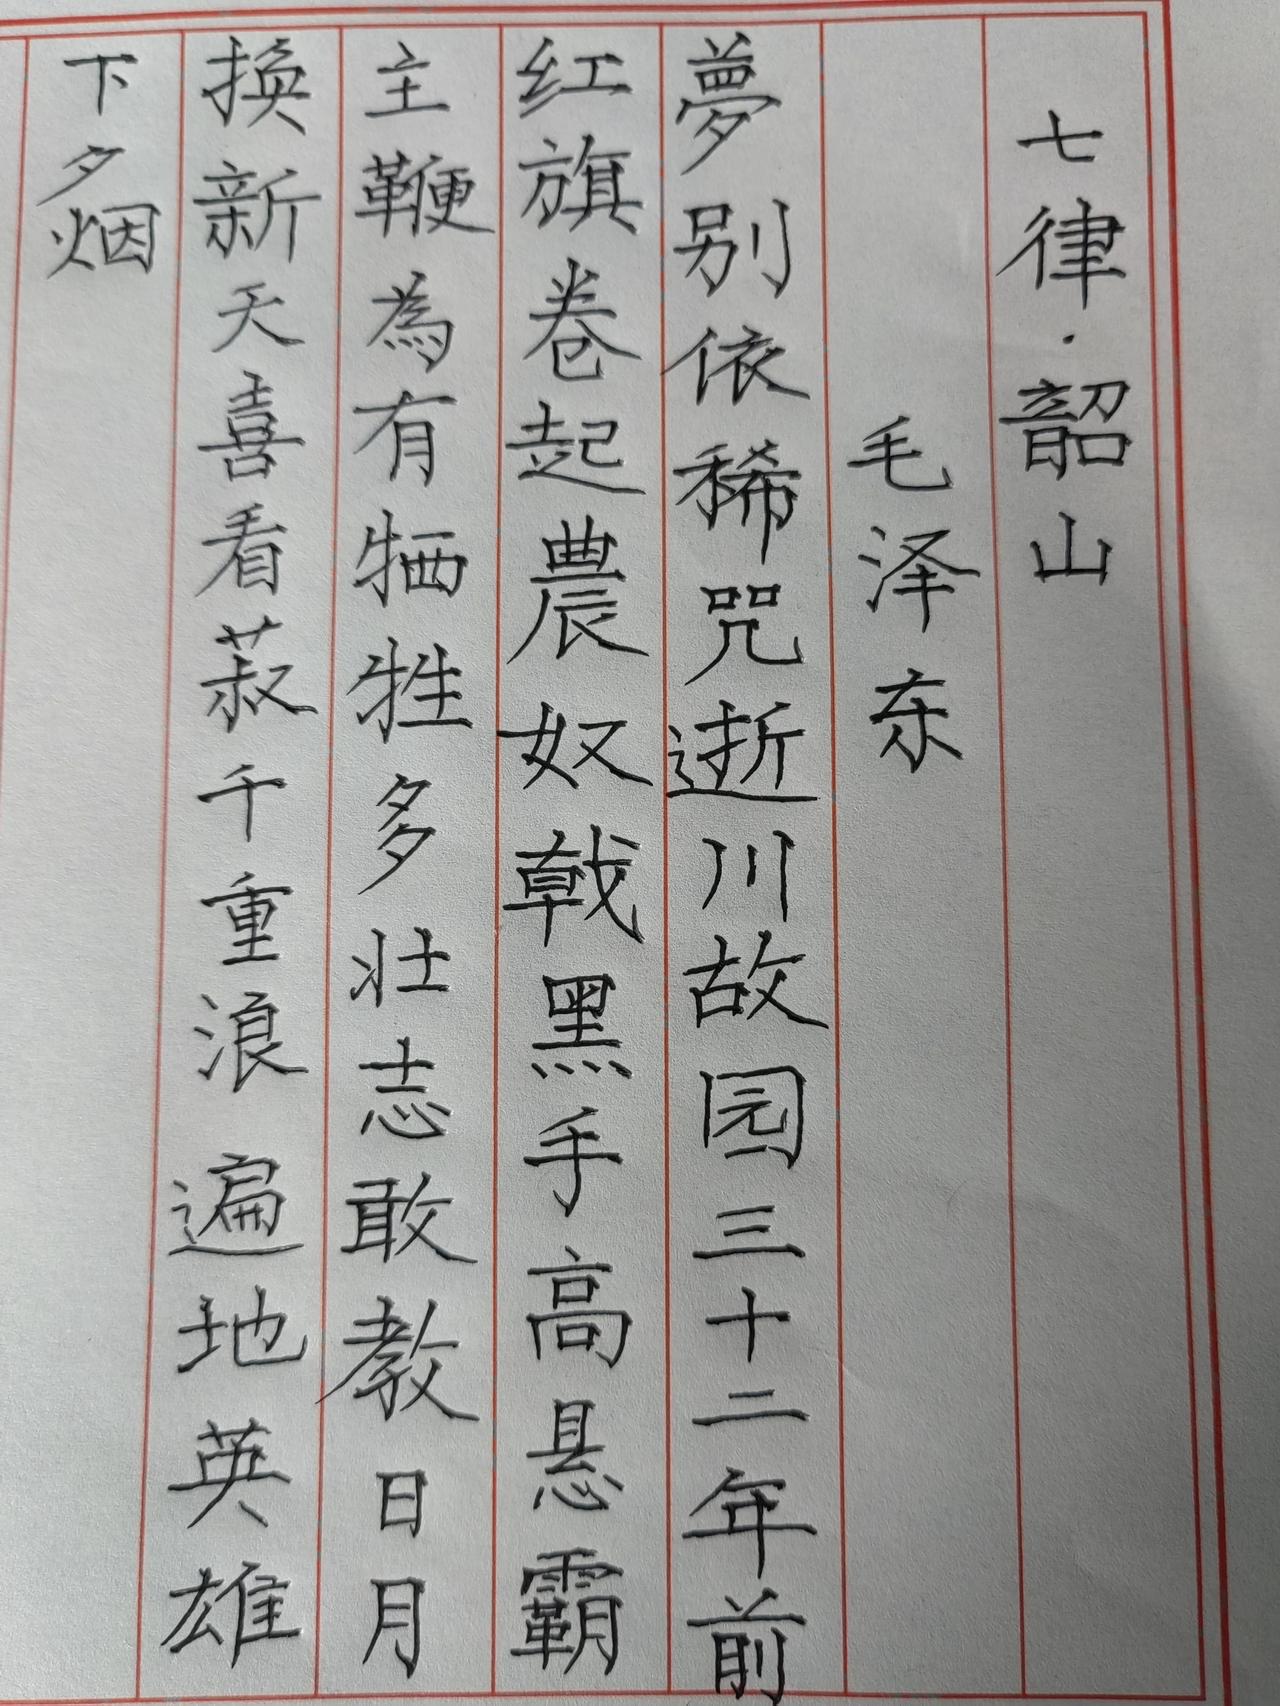 七律·韶山
毛泽东
夢别依稀咒逝川故园三十二年前
红旗卷起農奴戟黑手高悬霸
主鞭為有牺牲多壮志敢教日月
換新天喜看菽千重浪遍地英雄
下夕烟